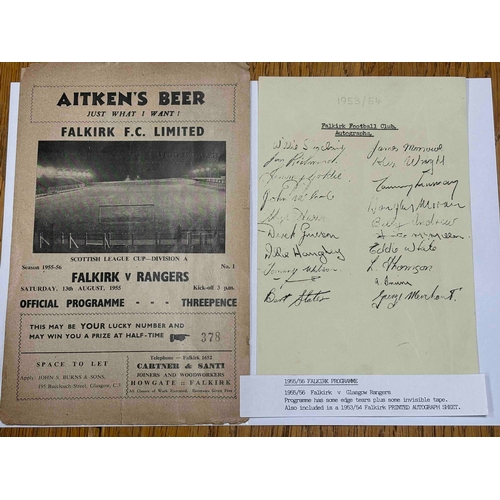 AITKEN'S BEER
JUST WHAT I WANT !
FALKIRK F.C. LIMITED
SCOTTISH LEAGUE CUP—DIVISION A
Season 1955-56
No. 1
FALKIRK V RANGERS
SATURDAY, 13th AUGUST, 1955
Kick-off 3 p.m.
OFFICIAL PROGRAMME - - - THREEPENCE
THIS MAY BE YOUR LUCKY NUMBER AND
MAY WIN YOU A PRIZE AT HALF-TIME
378
SPACE TO LET
Apply: JOHN S. BURNS & SONS,
195 Buccleuch Street, Glasgow, C.3
Telephone - Falkirk 1652
CARTNER & SANTI
JOINERS AND WOODWORKERS
HOWGATE :: FALKIRK
1953/54
Falkirk Football Club.
Autographs.
James Morrison
Ken Wright
John
Derek
Eddie White
L. Thomson
Bert Slater
George Merchant
1955/56 FALKIRK PROGRAMME
1955/56 Falkirk v Glasgow Rangers
Programme has some edge tears plus some invisible tape.
Also included is a 1953/54 Falkirk PRINTED AUTOGRAPH SHEET.